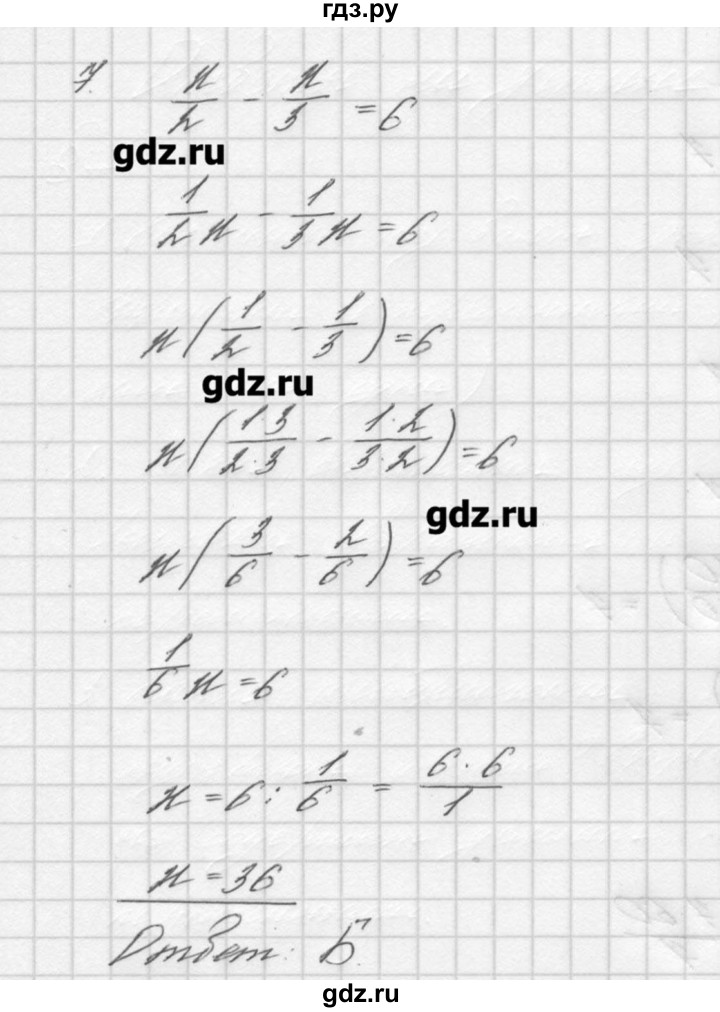 гдз.ру
7. x/2 - x/3 = 6
gdz.ru
1/2 x - 1/3 x = 6
x(1/2 - 1/3) = 6
gdz.ru
x(1·3/2·3 - 1·2/3·2) = 6
gdz.ru
x(3/6 - 2/6) = 6
1/6 x = 6
x = 6 : 1/6 = 6·6/1
x = 36
Ответ: Б.
gdz.ru